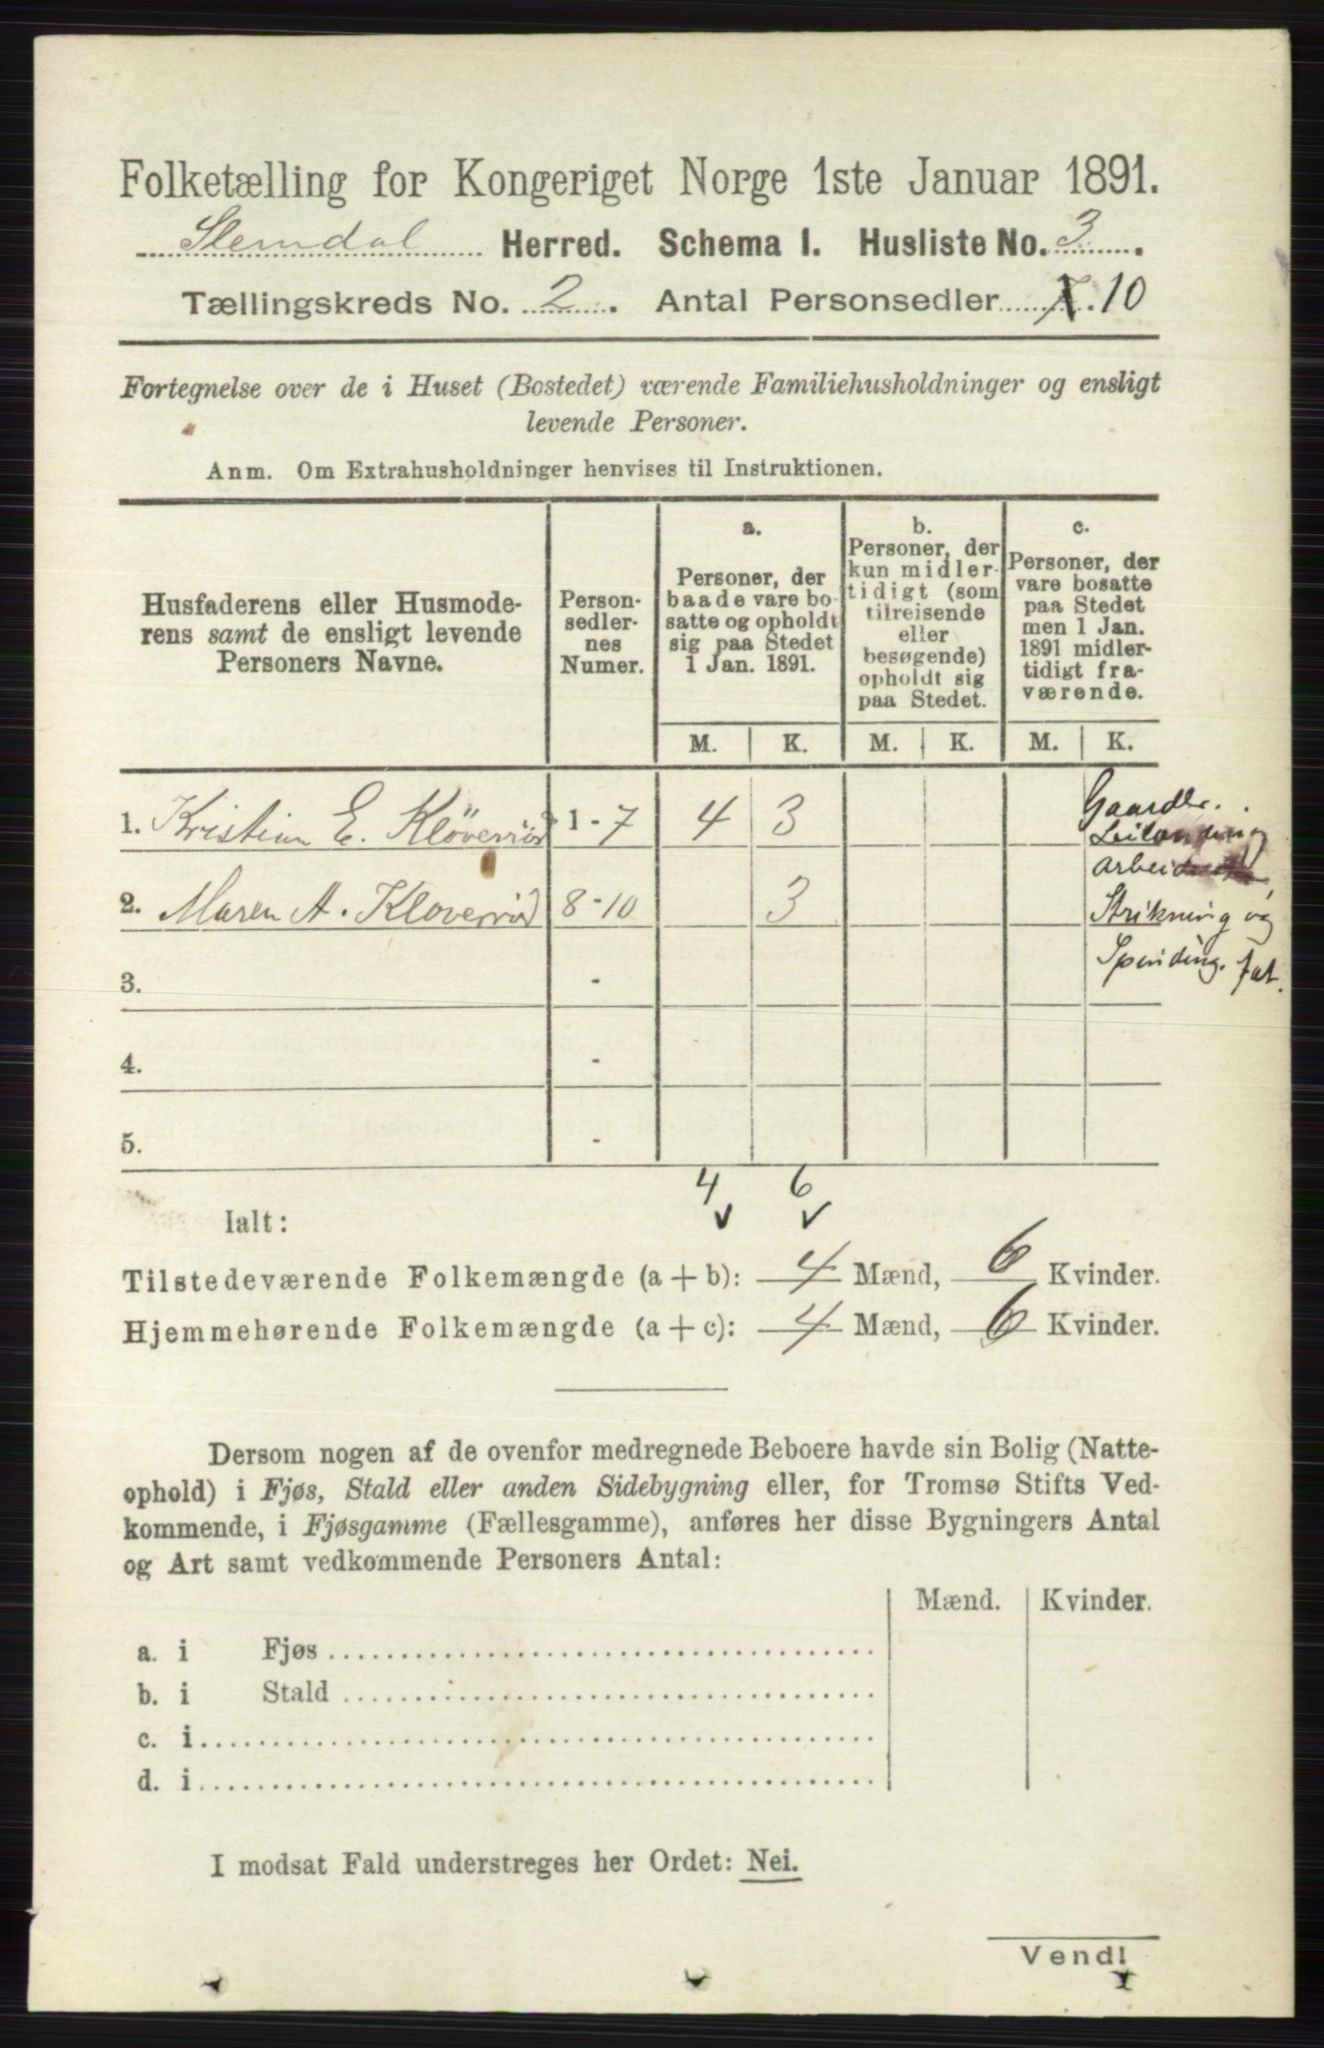 Folketælling for Kongeriget Norge 1ste Januar 1891.
Slemdal Herred. Schema I. Husliste No. 3.
Tællingskreds No. 2. Antal Personsedler 10
Fortegnelse over de i Huset (Bostedet) værende Familiehusholdninger og ensligt
levende Personer.
Anm. Om Extrahusholdninger henvises til Instruktionen.
Husfaderens eller Husmode-
rens samt de ensligt levende
Personers Navne.
Person-
sedler-
nes
Numer.
a.
Personer, der
baade vare bo-
satte og opholdt
sig paa Stedet
1 Jan. 1891.
b.
Personer, der
kun midler-
tidigt (som
tilreisende
eller
besøgende)
opholdt sig
paa Stedet.
c.
Personer, der
vare bosatte
paa Stedet
men 1 Jan.
1891 midler-
tidigt fra-
værende.
M. K. M. K. M. K.
1. Kristian E. Kløverrød 1 - 7 4 3
Gaardbr.
Leilending
Arbeider
2. Maren A. Kloverrød 8 - 10 3
Strikning og
Spinding. fat.
3. -
4. -
5. -
4 6
Ialt:
Tilstedeværende Folkemængde (a + b): 4 Mænd, 6 Kvinder.
Hjemmehørende Folkemængde (a + c): 4 Mænd, 6 Kvinder.
Dersom nogen af de ovenfor medregnede Beboere havde sin Bolig (Natte-
ophold) i Fjøs, Stald eller anden Sidebygning eller, for Tromsø Stifts Ved-
kommende, i Fjøsgamme (Fællesgamme), anføres her disse Bygningers Antal
og Art samt vedkommende Personers Antal:
Mænd. Kvinder.
a. i Fjøs
b. i Stald
c. i
d. i
I modsat Fald understreges her Ordet: Nei.
Vend!